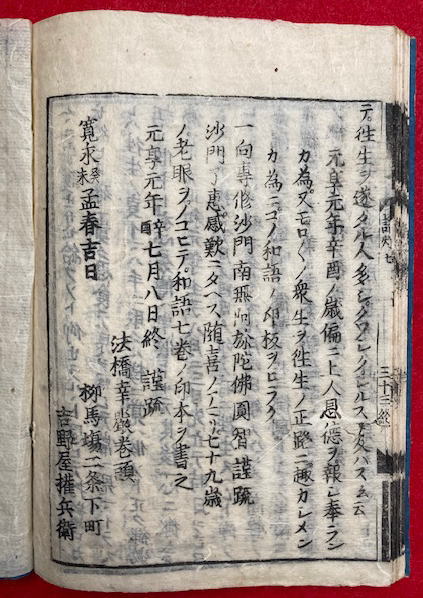 テ。往生ヲ遂タル人多シ。クワシクシルスニ及バス云云
元亨元年辛酉ノ歳偏ニ上人恩德ヲ報シ奉ラン
カ為。又モロ〱ノ衆生ヲ往生ノ正路ニ趣カシメン
カ為ニコノ和語ノ印板ヲヒラク
一向專修沙門南無阿弥陀佛圓智謹疏
沙門了惠感歎ニタヘス随喜ノアマリ七十九歳
ノ老眼ヲノコヒテ。和語七巻ノ印本ヲ書之
元亨元年辛酉七月八日終 謹疏
法橋幸嚴巻頭
寛永癸未孟春吉日
柳馬塲二条下町
吉野屋權兵衛
三十三終